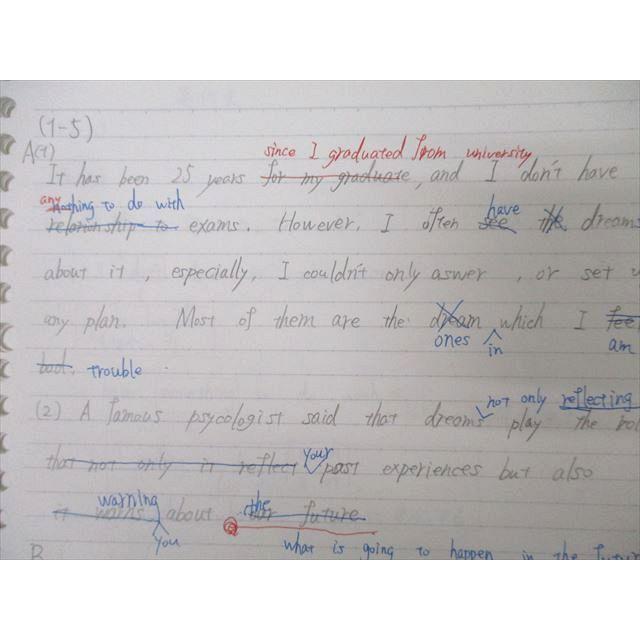 (1-5)
A(1)
since I graduated from university
It has been 25 years for my graduate, and I don't have
any nothing to do with
relationship to exams. However, I often see have the dreams
about it, especially, I couldn't only aswer, or set
any plan. Most of them are the dream which I fee
ones in am
bad. trouble
not only reflecting
(2) A famous psycologist said that dreams play the rol
your
that not only it reflect past experiences but also
warning the
it warns about our future
you
B what is going to happen in the futur